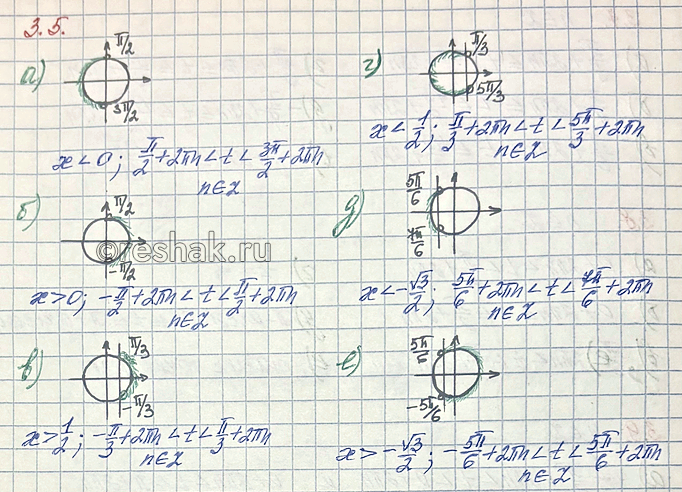 3.5.
а)
π/2
3π/2
x < 0; π/2 + 2πn < t < 3π/2 + 2πn
n ∈ Z
б)
π/2
-π/2
x > 0; -π/2 + 2πn < t < π/2 + 2πn
n ∈ Z
в)
π/3
-π/3
x > 1/2; -π/3 + 2πn < t < π/3 + 2πn
n ∈ Z
г)
π/3
5π/3
x < 1/2; π/3 + 2πn < t < 5π/3 + 2πn
n ∈ Z
д)
5π/6
7π/6
x < -√3/2; 5π/6 + 2πn < t < 7π/6 + 2πn
n ∈ Z
е)
5π/6
-5π/6
x > -√3/2; -5π/6 + 2πn < t < 5π/6 + 2πn
n ∈ Z
©reshak.ru